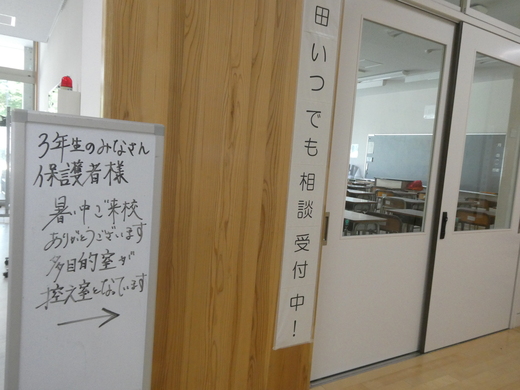 3年生のみなさん
保護者様
暑い中ご来校
ありがとうございます
多目的室が
控え室となっています
田いつでも相談受付中!